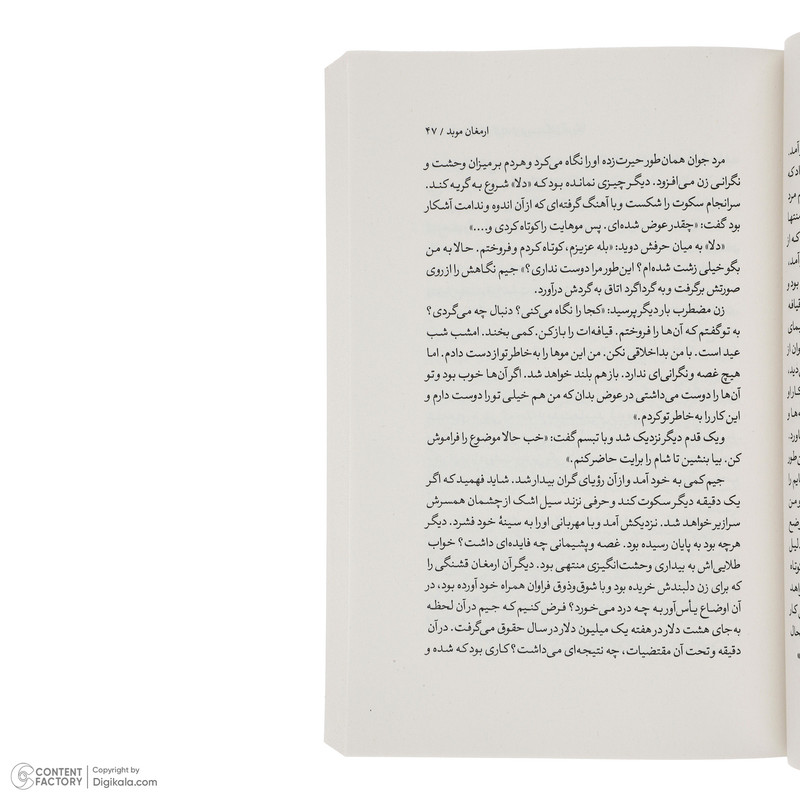 ارمغان موبد / ۴۷
مرد جوان همان‌طور حیرت‌زده او را نگاه می‌کرد و هردم بر میزان وحشت و
نگرانی زن می‌افزود. دیگر چیزی نمانده بود که «دلا» شروع به گریه کند.
سرانجام سکوت را شکست و با آهنگ گرفته‌ای که از آن اندوه و ندامت آشکار
بود گفت: «چقدر عوض شده‌ای. پس موهایت را کوتاه کردی و....»
«دلا» به میان حرفش دوید: «بله عزیزم، کوتاه کردم و فروختم. حالا به من
بگو خیلی زشت شده‌ام؟ این‌طور مرا دوست نداری؟» جیم نگاهش را از روی
صورتش برگرفت و به گرداگرد اتاق به گردش درآورد.
زن مضطرب بار دیگر پرسید: «کجا را نگاه می‌کنی؟ دنبال چه می‌گردی؟
به تو گفتم که آن‌ها را فروختم. قیافه‌ات را باز کن. کمی بخند. امشب شب
عید است. با من بداخلاقی نکن. من این موها را به خاطر تو از دست دادم. اما
هیچ غصه و نگرانی‌ای ندارد. باز هم بلند خواهد شد. اگر آن‌ها خوب بود و تو
آن‌ها را دوست می‌داشتی در عوض بدان که من هم خیلی تو را دوست دارم و
این کار را به خاطر تو کردم.»
و یک قدم دیگر نزدیک شد و با تبسم گفت: «خب حالا موضوع را فراموش
کن. بیا بنشین تا شام را برایت حاضر کنم.»
جیم کمی به خود آمد و از آن رؤیای گران بیدار شد. شاید فهمید که اگر
یک دقیقه دیگر سکوت کند و حرفی نزند سیل اشک از چشمان همسرش
سرازیر خواهد شد. نزدیکش آمد و با مهربانی او را به سینهٔ خود فشرد. دیگر
هرچه بود به پایان رسیده بود. غصه و پشیمانی چه فایده‌ای داشت؟ خواب
طلایی‌اش به بیداری وحشت‌انگیزی منتهی بود. دیگر آن ارمغان قشنگی را
که برای زن دلبندش خریده بود و با شوق و ذوق فراوان همراه خود آورده بود، در
آن اوضاع یأس‌آور به چه درد می‌خورد؟ فرض کنیم که جیم در آن لحظه
به جای هشت دلار در هفته یک میلیون دلار در سال حقوق می‌گرفت. در آن
دقیقه و تحت آن مقتضیات، چه نتیجه‌ای می‌داشت؟ کاری بود که شده و
CONTENT FACTORY
Copyright by
Digikala.com